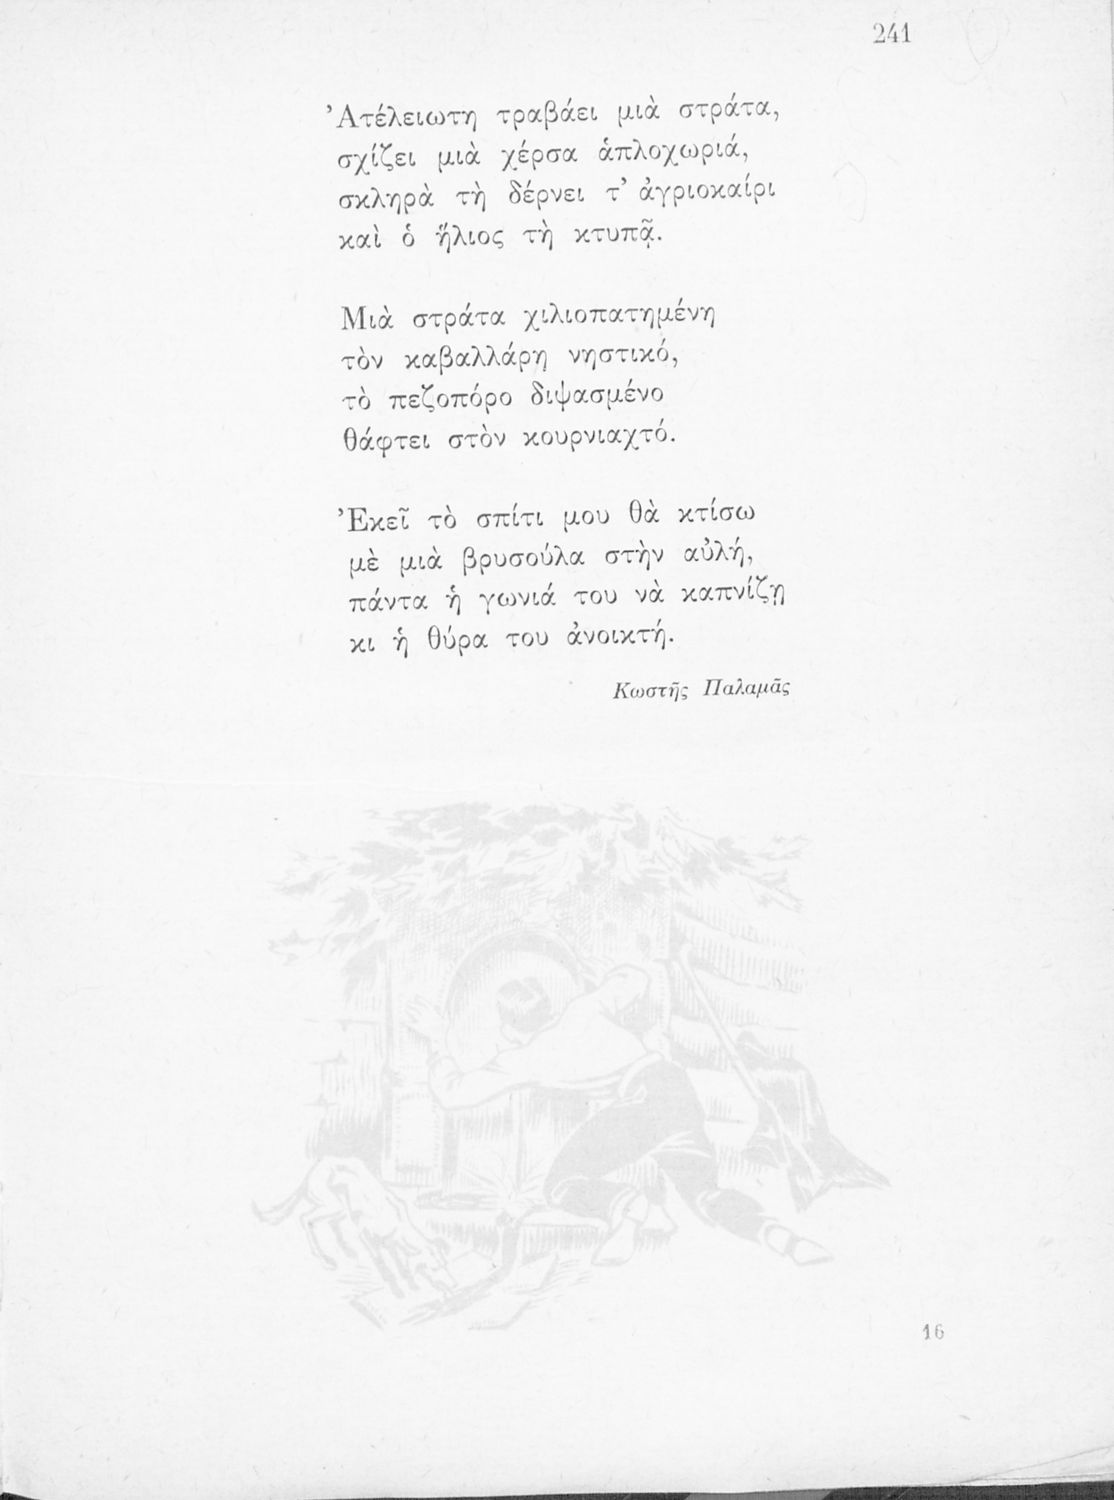 241
Ἀτέλειωτη τραβάει μιὰ στράτα,
σχίζει μιὰ χέρσα ἁπλοχωριά,
σκληρὰ τὴ δέρνει τ’ ἀγριοκαίρι
καὶ ὁ ἥλιος τὴ κτυπᾷ.
Μιὰ στράτα χιλιοπατημένη
τὸν καβαλλάρη νηστικό,
τὸ πεζοπόρο διψασμένο
θάφτει στὸν κουρνιαχτό.
Ἐκεῖ τὸ σπίτι μου θὰ κτίσω
μὲ μιὰ βρυσούλα στὴν αὐλή,
πάντα ἡ γωνιά του νὰ καπνίζῃ
κι ἡ θύρα του ἀνοικτή.
Κωστῆς Παλαμᾶς
16